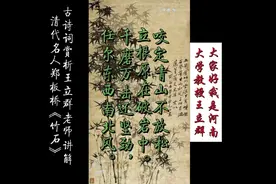 大家好我是河南
大学教授王立群
咬定青山不放松，
立根原在破岩中。
千磨万击还坚劲，
任尔东西南北风。
古诗词赏析王立群老师讲解
清代名人郑板桥《竹石》